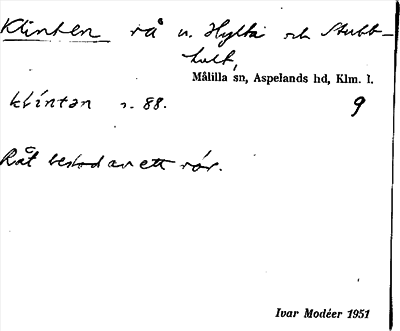 Klinten rå n. Hylta och Stubb-
hult,
Målilla sn, Aspelands hd, Klm. l.
klintən s. 88. 9
Rået bestod av ett rör.
Ivar Modéer 1951